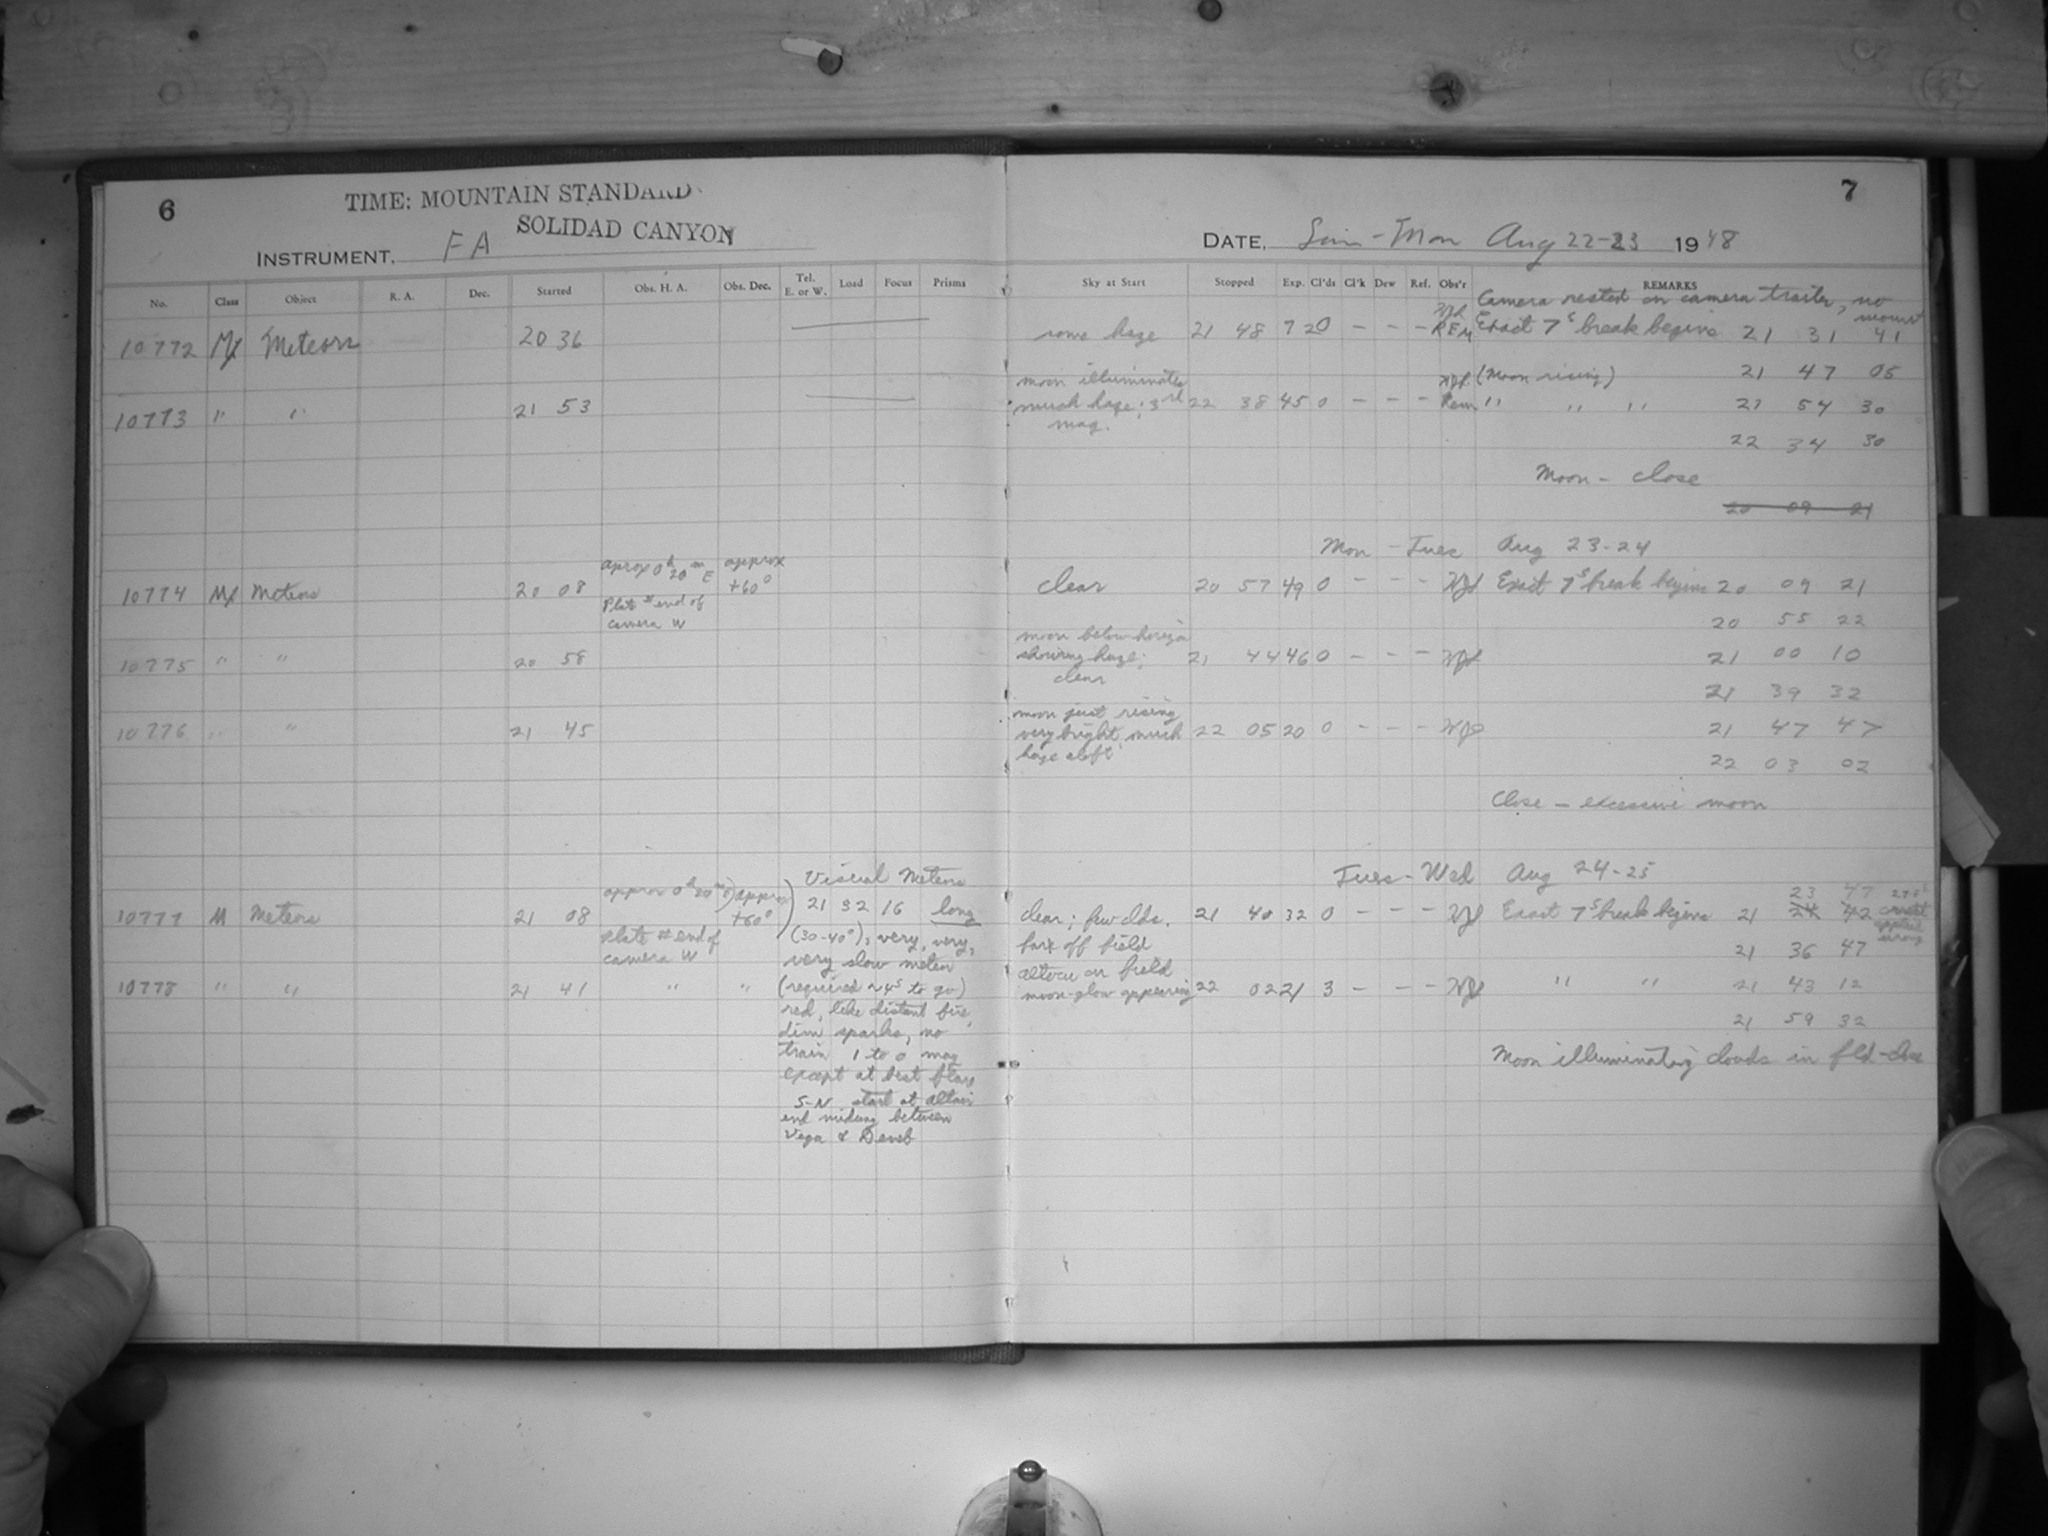 6
TIME: MOUNTAIN STANDARD
SOLIDAD CANYON
INSTRUMENT, FA
No. Class Object R. A. Dec. Started Obs. H. A. Obs. Dec. Tel. E. or W. Load Focus Prisms
10772 Meteors 20 36
10773 " " 21 53
10774 Meteors 20 08 aprox 0h 20m E approx +60°
Plate # end of
camera W
10775 " " 20 58
10776 " " 21 45
Visual Meteors
10777 M Meteors 21 08 approx 0h 20m approx +60° 21 32 16 long
plate # end of
camera W
(30-40°), very, very,
very slow meteor
10778 " " 21 41 " " (required ~4s to go)
red, like distant fire,
dim sparks, no
train 1 to 0 mag
except at best flare
S-N start at Altair
end midway between
Vega & Deneb
7
DATE, Sun-Mon Aug 22-23 1948
Sky at Start Stopped Exp. Cl'ds Cl'k Dew Ref. Obs'r REMARKS
Camera rested on camera trailer, no
mount
some haze 21 48 72 0 - - - REM Exact 7s break begins 21 31 41
(Moon rising) 21 47 05
moon illuminates
much haze; 3rd
mag.
22 38 45 0 - - - Rem " " " 21 54 30
22 34 30
Moon - close
20 09 21
Mon - Tues Aug 23-24
clear 20 57 49 0 - - - Exact 7s break begins 20 09 21
20 55 22
moon below horizon
showing haze;
clear
21 44 46 0 - - - 21 00 10
21 39 32
moon just rising
very bright, much
haze aloft
22 05 20 0 - - - 21 47 47
22 03 02
Close - excessive moon
Tues-Wed Aug 24-25
23 47
clear; few clds.
far off field
21 40 32 0 - - - Exact 7s break begins 21 24 42
correct
applied
wrong
21 36 47
on field
moon-glow appearing
22 02 21 3 - - - " " 21 43 12
21 59 32
Moon illuminating clouds in fld-close